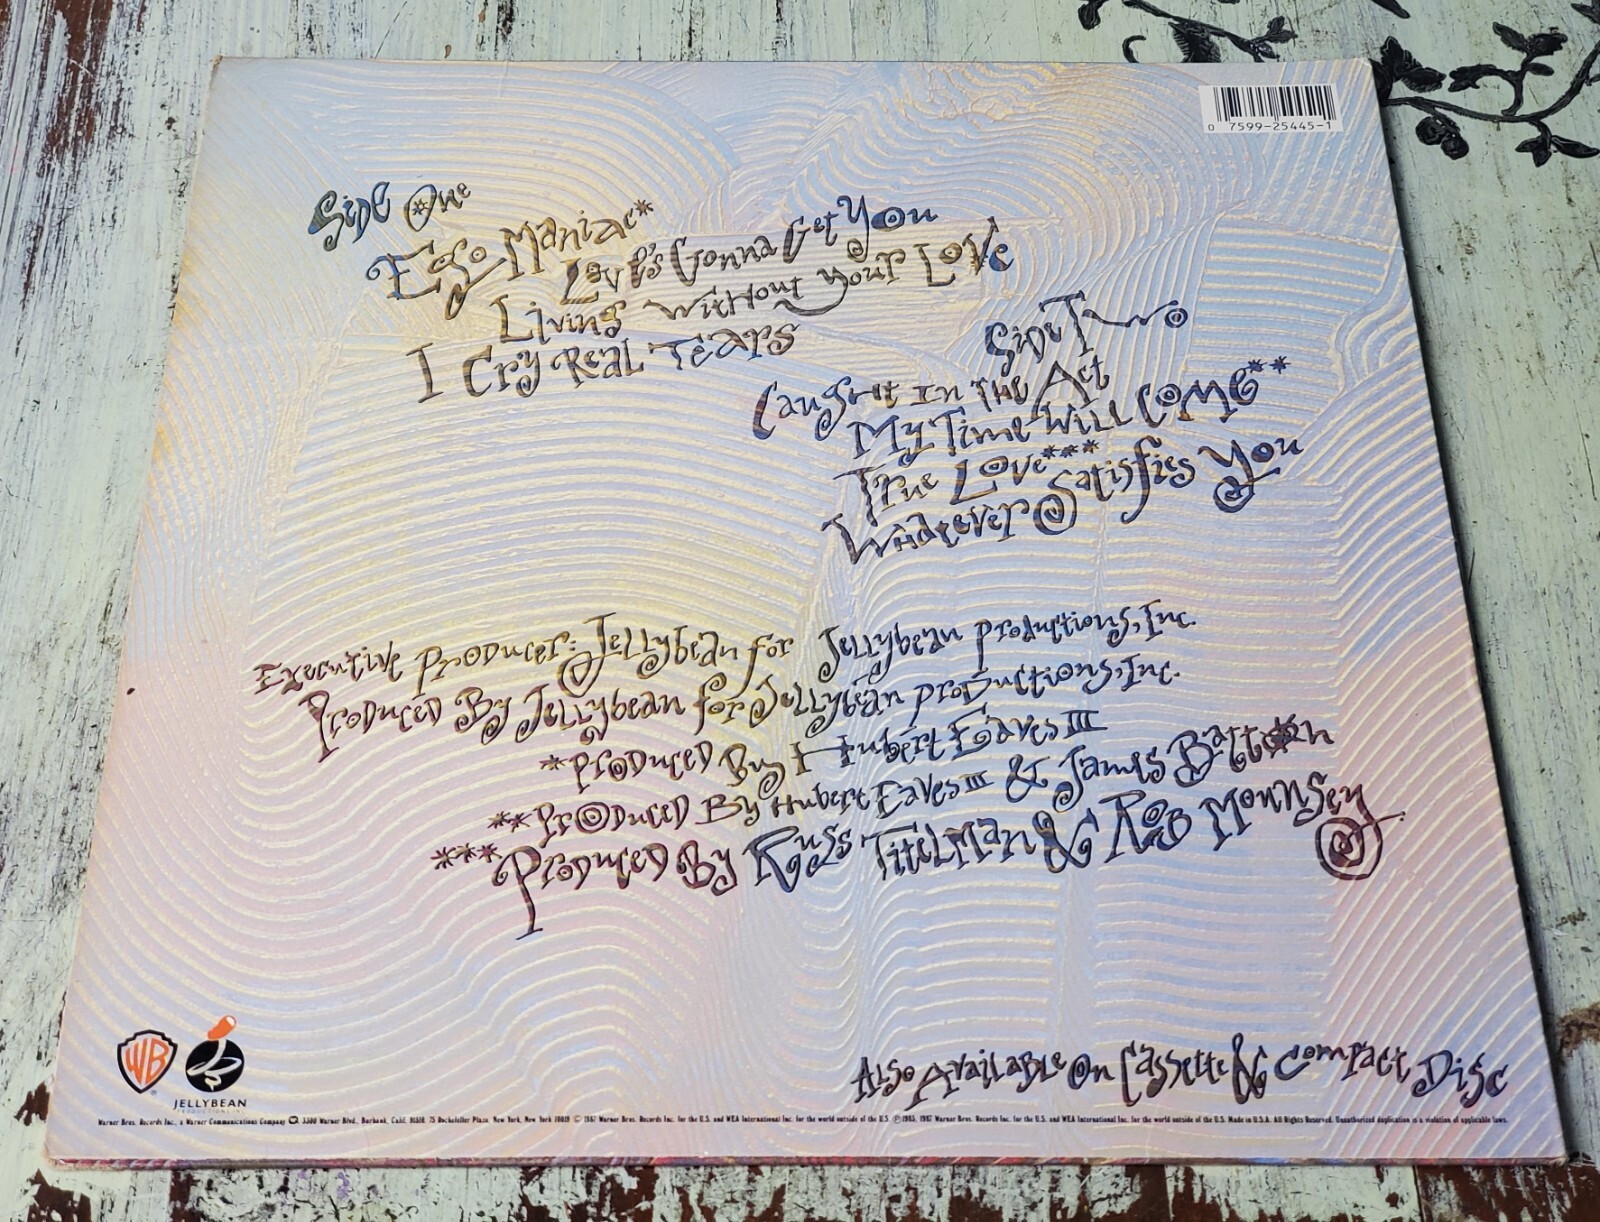 0 7599-25445-1
Side One
Ego Maniac*
Love's Gonna Get You
Living Without Your Love
I Cry Real Tears
Side Two
Caught In The Act
My Time Will Come**
True Love***
Whatever Satisfies You
Executive Producer: Jellybean for Jellybean Productions, Inc.
Produced By Jellybean for Jellybean Productions, Inc.
*Produced By Hubert Eaves III
**Produced By Hubert Eaves III & James Batton
***Produced By Russ Titelman & Rob Mounsey
WB
JELLYBEAN
PRODUCTIONS INC.
Also Available On Cassette & Compact Disc
Warner Bros. Records Inc., a Warner Communications Company 3300 Warner Blvd., Burbank, Calif. 91510. 75 Rockefeller Plaza, New York, New York 10019 © 1987 Warner Bros. Records Inc. for the U.S. and WEA International Inc. for the world outside of the U.S. ℗ 1985, 1987 Warner Bros. Records Inc. for the U.S. and WEA International Inc. for the world outside of the U.S. Made in U.S.A. All Rights Reserved. Unauthorized duplication is a violation of applicable laws.